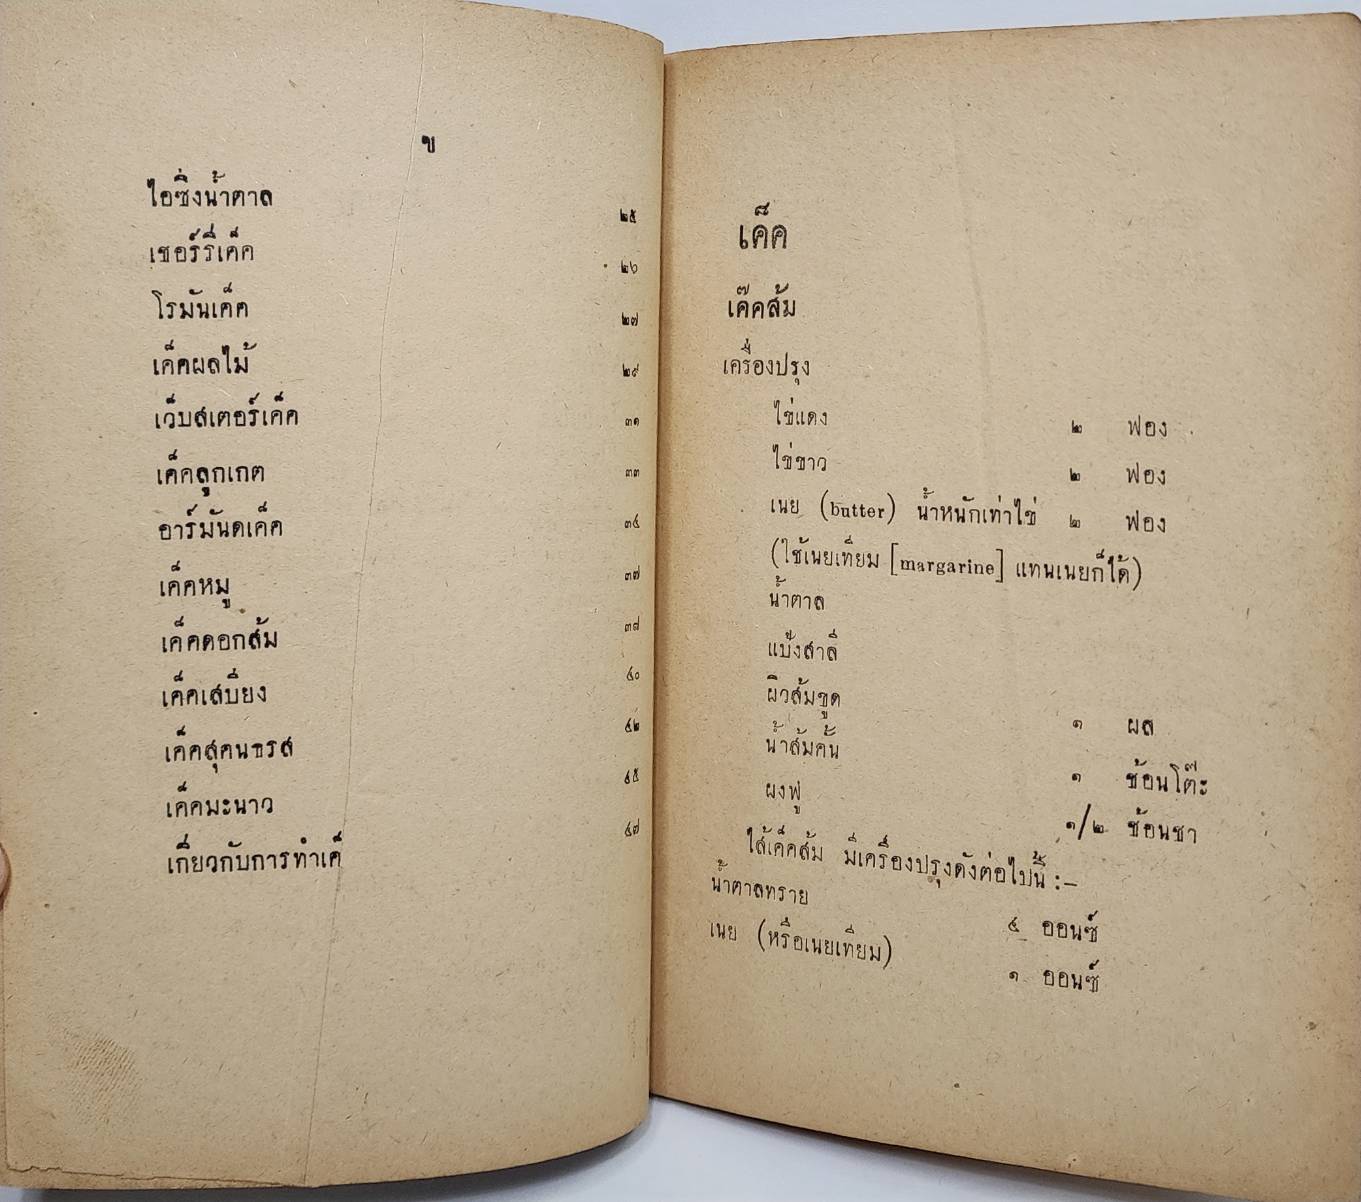 ข
ไอซิ่งน้ำตาล ๒๕
เชอร์รี่เค็ค ๒๖
โรมันเค็ค ๒๗
เค็คผลไม้ ๒๙
เว็บสเตอร์เค็ค ๓๑
เค็คลูกเกต ๓๓
อาร์มันดเค็ค ๓๔
เค็คหมู ๓๗
เค็คดอกส้ม ๓๘
เค็คเสบียง ๔๐
เค็คสุคนธรส ๔๒
เค็คมะนาว ๔๕
เกี่ยวกับการทำเค็ ๔๗
เค็ค
เค๊คส้ม
เครื่องปรุง
ไข่แดง ๒ ฟอง
ไข่ขาว ๒ ฟอง
เนย (butter) น้ำหนักเท่าไข่ ๒ ฟอง
(ใช้เนยเทียม [margarine] แทนเนยก็ได้)
น้ำตาล
แป้งสาลี
ผิวส้มขูด ๑ ผล
น้ำส้มคั้น ๑ ช้อนโต๊ะ
ผงฟู ๑/๒ ช้อนชา
ไส้เค็คส้ม มีเครื่องปรุงดังต่อไปนี้ :–
น้ำตาลทราย ๔ ออนซ์
เนย (หรือเนยเทียม) ๑ ออนซ์